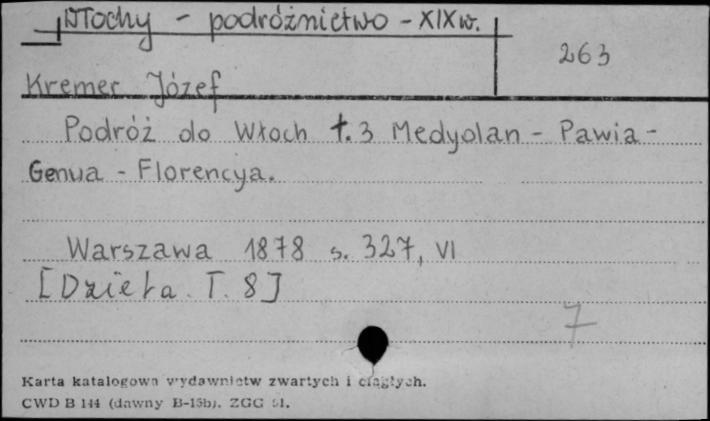 Włochy - podróżnictwo - XIX w.
263
Kremer Józef
Podróż do Włoch t. 3 Medyolan - Pawia -
Genua - Florencya.
Warszawa 1878 s. 327, VI
[Dzieła. T. 8]
7
Karta katalogowa wydawnictw zwartych i ciągłych.
CWD B 144 (dawny B-15b). ZGG